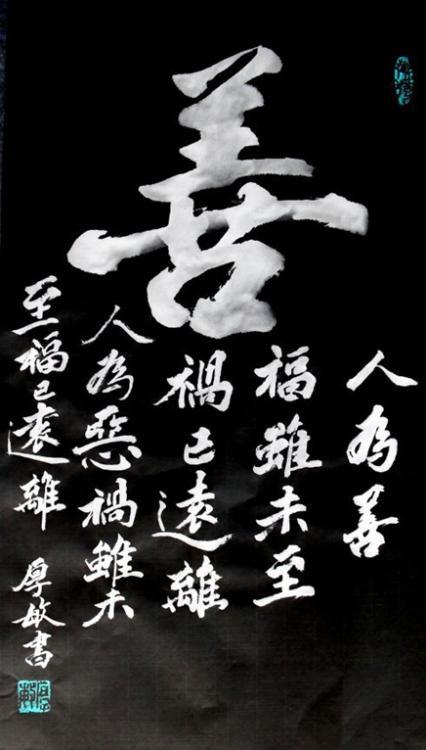 善
人為善
福雖未至
禍已遠離
人為惡禍雖未
至福已遠離
厚敏書